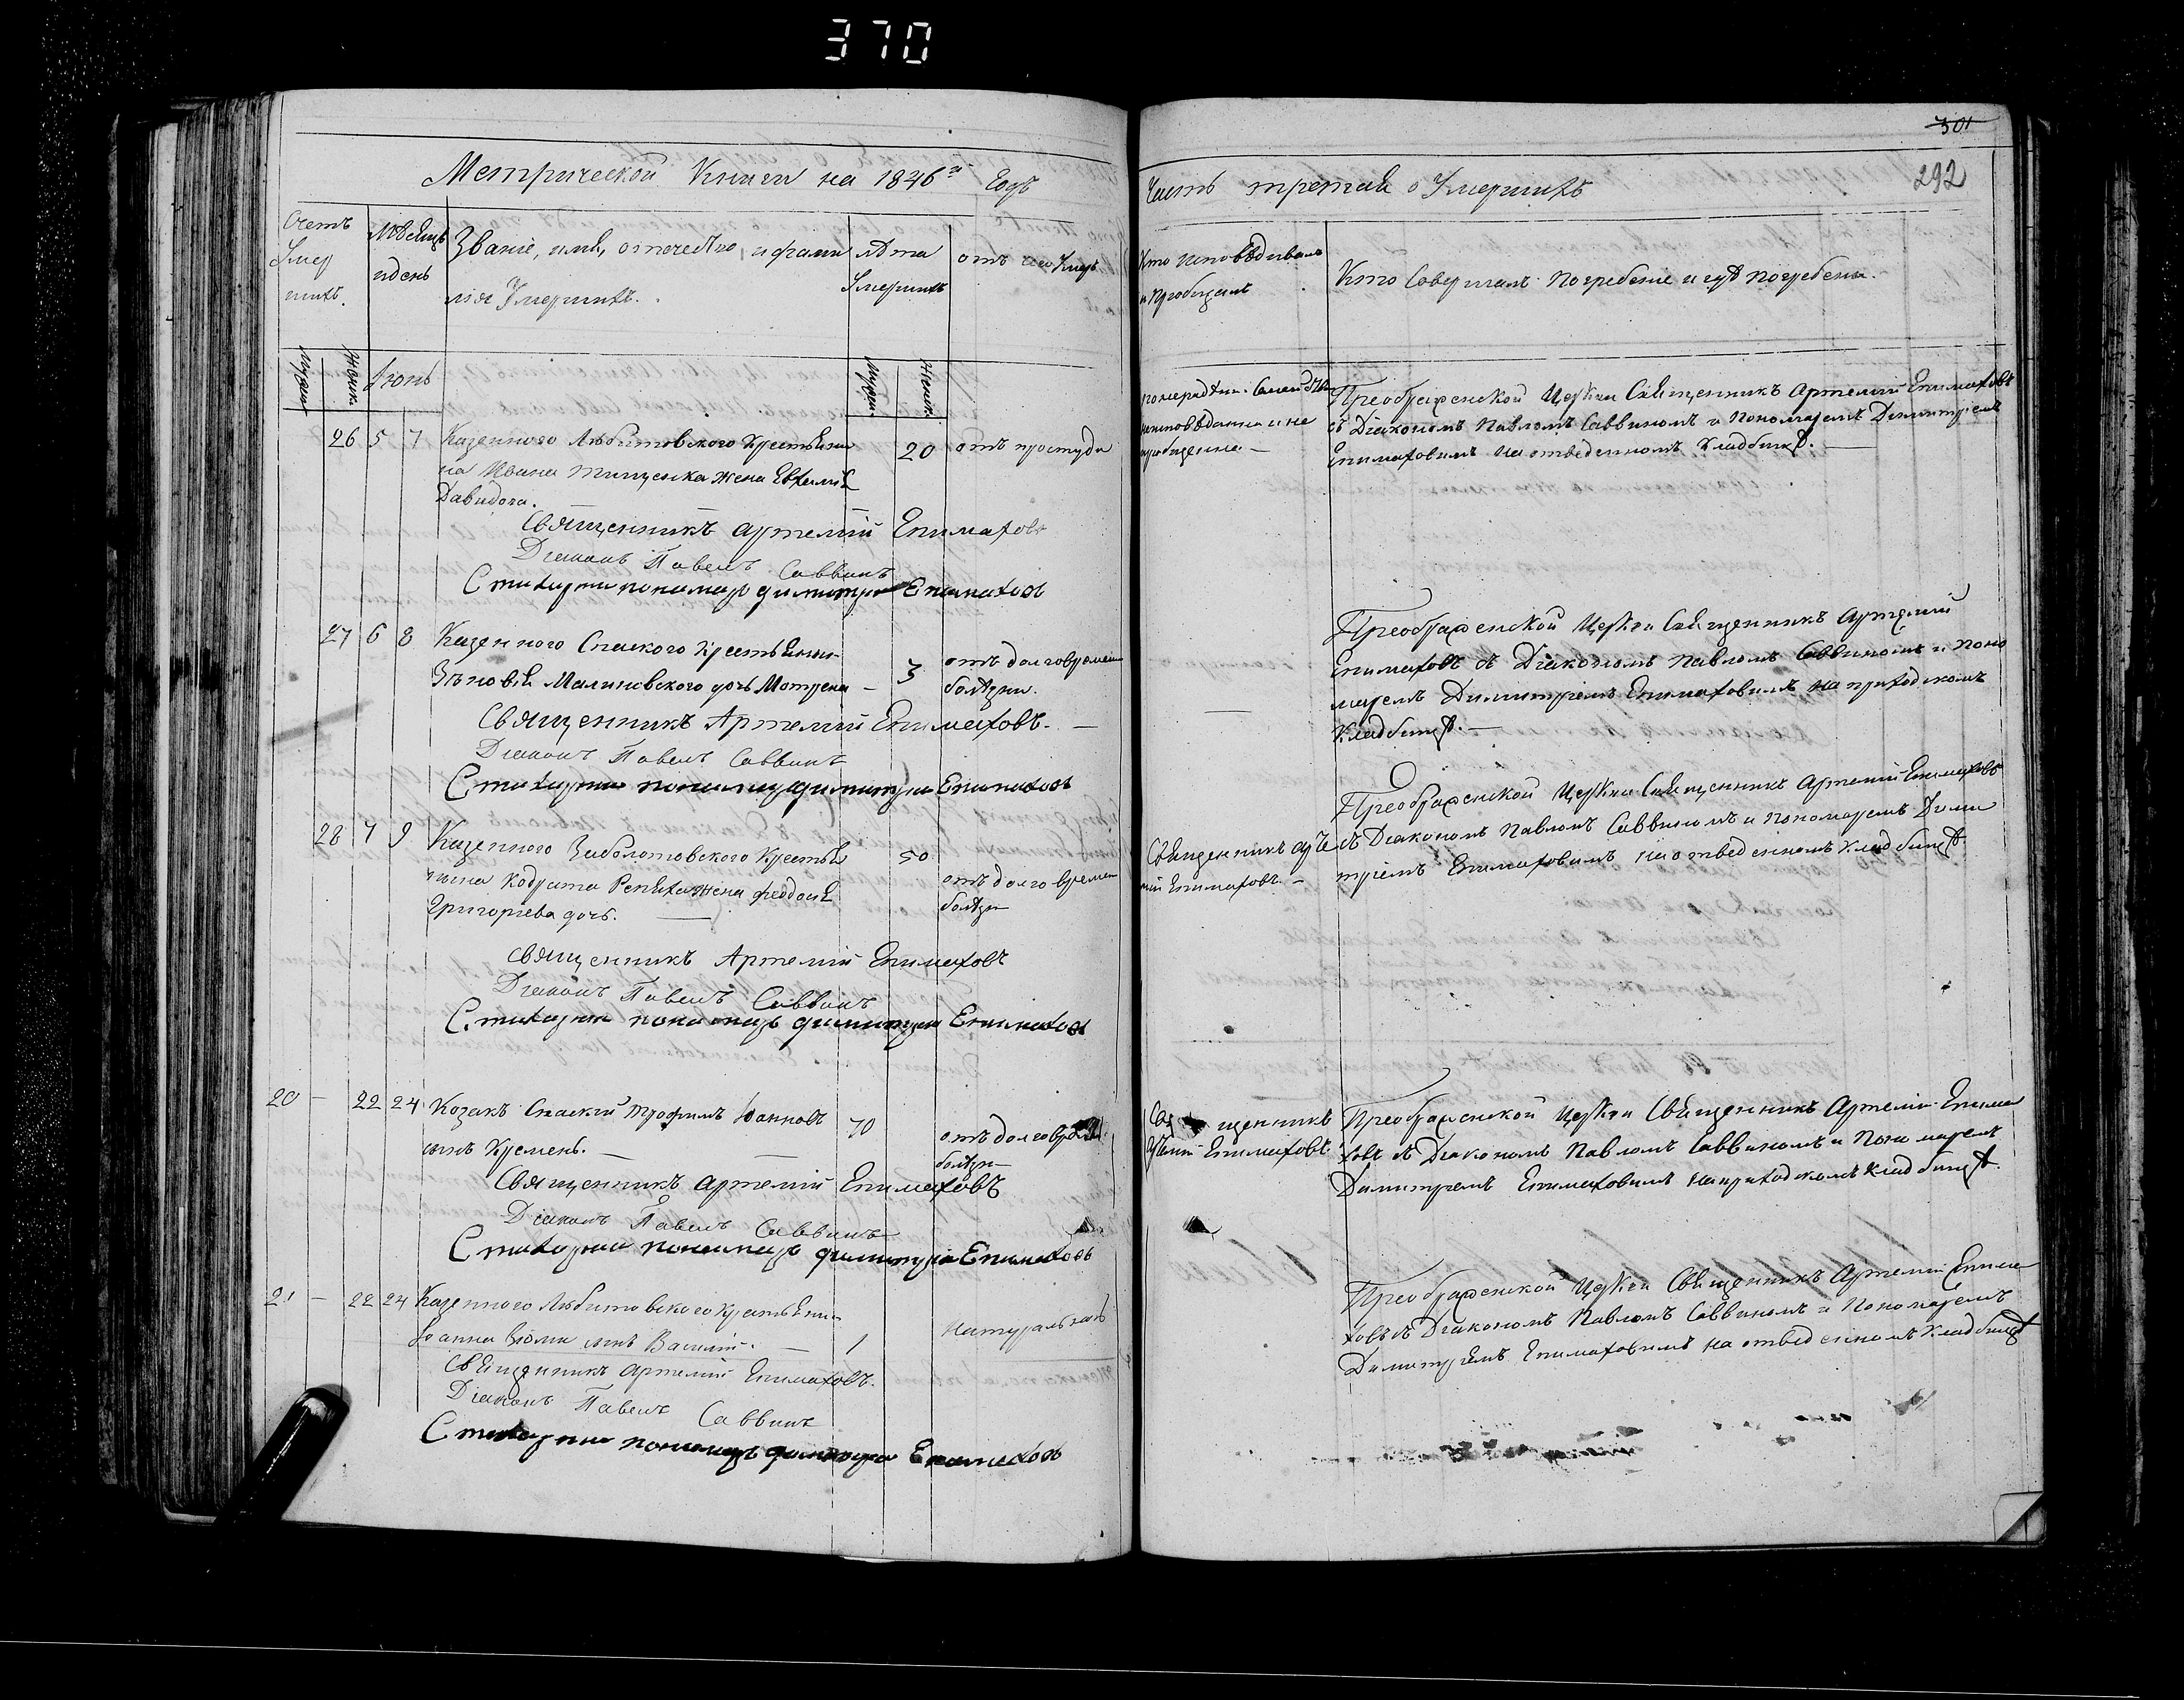 370
Метрической Книги на 1846й Годъ
Счетъ Умер шихъ.
Мѣсяцъ и день
Званіе, имя, отечество, и фами лія Умершихъ.
лѣта Умершихъ
отъ чего Умеръ
Мужеск.
Женск.
Іюнь
Мужеск.
Женск.
26 5 7 Казенного Любитовского Крестьяни
на Ивана Тищенка жена Евхимія
Давидова.
20
отъ простуды
Священникъ Артемій Епимаховъ
Діаконъ Павелъ Саввинъ
Стихарни пономарь Димитрій Епимахов
27 6 8 Казенного Спаского Крестьянин
Зѣновія Малиновского дочь Мотрена —
3
отъ долговремен
болѣзни.
Священникъ Артемій Епимаховъ. —
Діаконъ Павелъ Саввинъ
Стихарни пономарь Димитрій Епимахов
28 7 9 Казенного Заболотовского Крестья
нина Кодрата Репѣха жена Феодосія
Григоріева дочь. —
50
отъ долговремен
болѣзн
Священникъ Артемій Епимаховъ
Діаконъ Павелъ Саввинъ
Стихарни пономарь Димитрій Епимахов
20 — 22 24 Козакъ Спаскій Трофимъ Іоанновъ
сынъ Кремень. —
70
отъ долговрем
болѣзн
Священникъ Артемій Епимаховъ
Діаконъ Павелъ Саввинъ
Стихарни пономарь Димитрій Епимаховъ
21 — 22 24 Казенного Любитовского Крестьяни
Іоанна сынъ Василій. —
1
Натуральною
Священникъ Артемій Епимаховъ.
Діаконъ Павелъ Саввинъ
Стихарни пономарь Димитрій Епимахов
301
292
Часть третая о Умершихъ
Кто исповѣдивалъ и пріобщалъ
Кто Совершалъ Погребеніе и гдѣ Погребены.
неисповѣданна и не
пріобщенна. —
Преображенской Церкви Священникъ Артемій Епимаховъ
съ Діакономъ Павломъ Саввиномъ и Пономаремъ Димитріемъ
Епимаховимъ на отведенномъ Кладбищѣ. —
—
Преображенской Церкви Священникъ Артемій
Епимаховъ съ Діакономъ Павломъ Саввиномъ и Поно
маремъ Димитріемъ Епимаховимъ на приходскомъ
Кладбищѣ. —
Священникъ Арте
мій Епимаховъ. —
Преображенской Церкви Священникъ Артемій Епимаховъ
съ Діакономъ Павломъ Саввиномъ и Пономаремъ Дими
тріемъ Епимаховимъ на отведенномъ Кладбищѣ.
Священникъ
Артемій Епимаховъ
Преображенской Церкви Священникъ Артемій Епима
ховъ съ Діакономъ Павломъ Саввиномъ и Пономаремъ
Димитріемъ Епимаховимъ на приходскомъ Кладбищѣ.
Преображенской Церкви Священникъ Артемій Епима
ховъ съ Діакономъ Павломъ Саввиномъ и Пономаремъ
Димитріемъ Епимаховимъ на отведенномъ Кладбищѣ